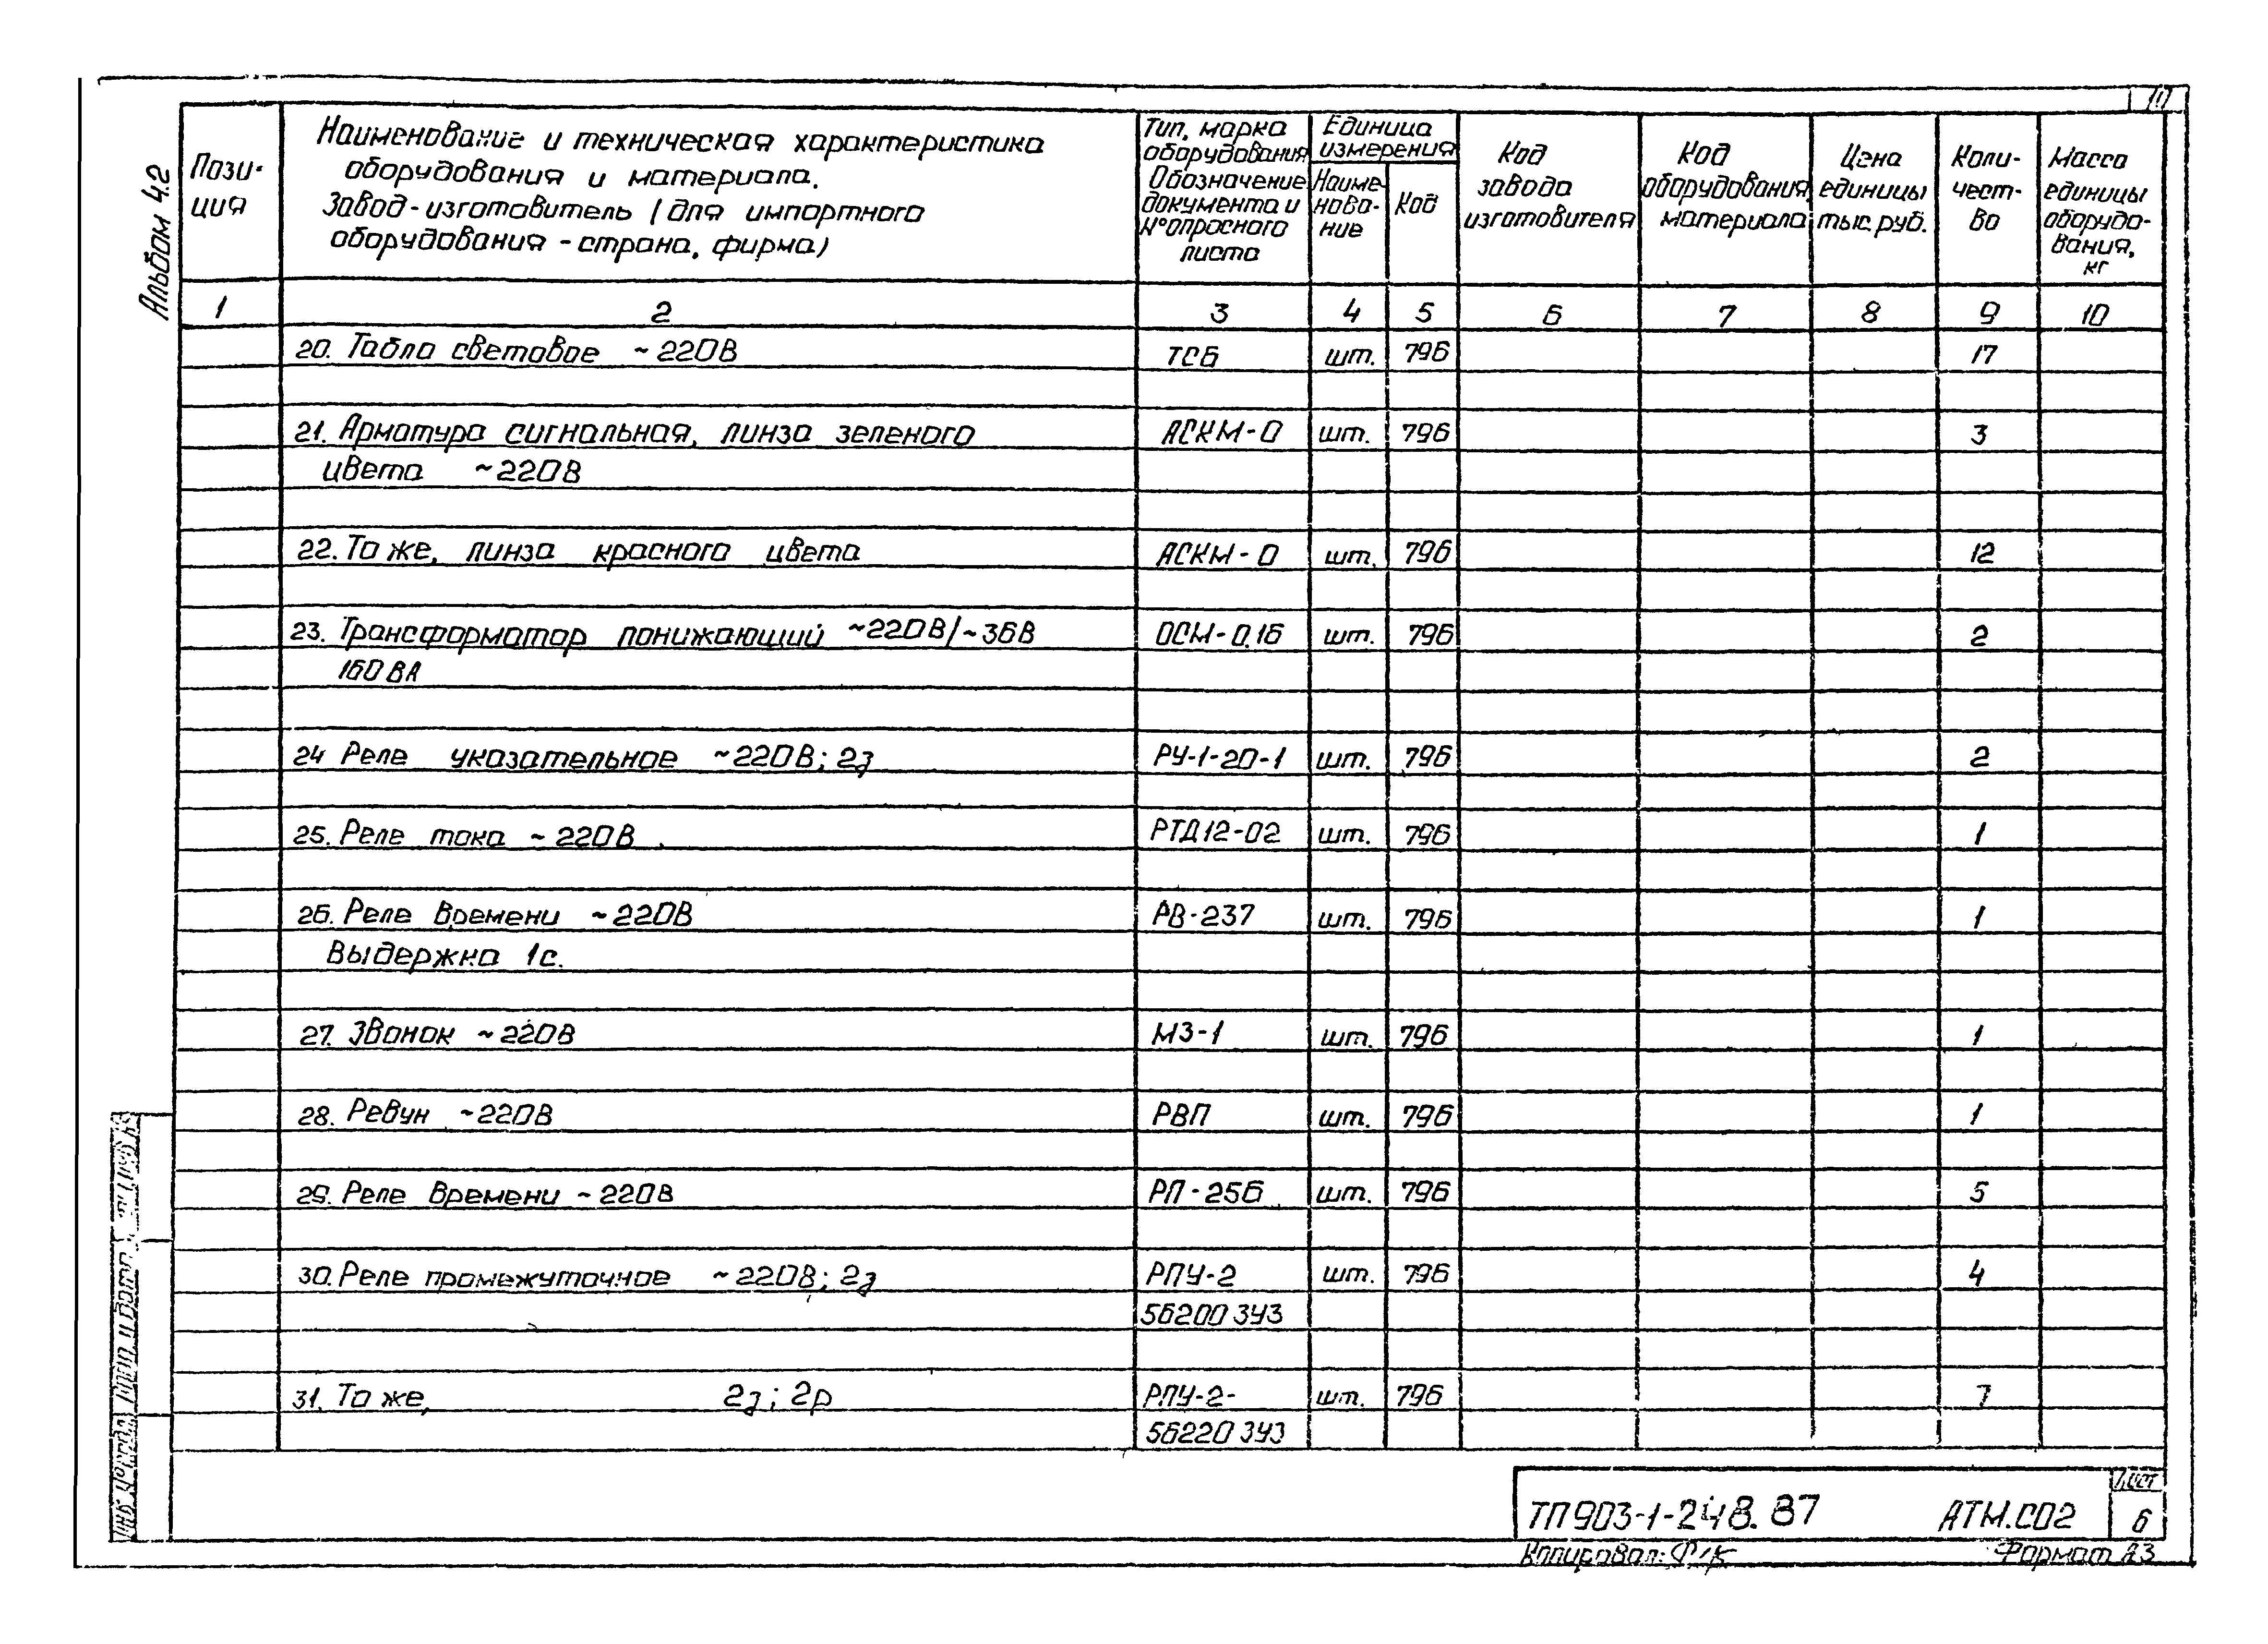 Альбом 4.2
Пози-
ция
Наименование и техническая характеристика
оборудования и материала.
Завод-изготовитель (для импортного
оборудования - страна, фирма)
Тип, марка
оборудования
Обозначение
документа и
№ опросного
листа
Единица
измерения
Наиме-
нова-
ние
Код
Код
завода
изготовителя
Код
оборудования,
материала
Цена
единицы
тыс. руб.
Коли-
чест-
во
Масса
единицы
оборудо-
вания,
кг
1 2 3 4 5 6 7 8 9 10
20. Табло световое ~220В ТСБ шт. 796 17
21. Арматура сигнальная, линза зеленого АСКМ-0 шт. 796 3
цвета ~220В
22. То же, линза красного цвета АСКМ-0 шт. 796 12
23. Трансформатор понижающий ~220В/~36В ОСМ-0,16 шт. 796 2
160 ВА
24 Реле указательное ~220В; 2з РУ-1-20-1 шт. 796 2
25. Реле тока ~220В РТД12-02 шт. 796 1
26. Реле времени ~220В РВ-237 шт. 796 1
Выдержка 1с.
27. Звонок ~220В МЗ-1 шт. 796 1
28. Ревун ~220В РВП шт. 796 1
29. Реле времени ~220В РП-256 шт. 796 5
30. Реле промежуточное ~220В; 2з РПУ-2 шт. 796 4
56200 3У3
31. То же, 2з; 2р РПУ-2- шт. 796 7
56220 3У3
ТП 903-1-248.87 АТМ.СО2
Лист
6
Копировал:
Формат А3